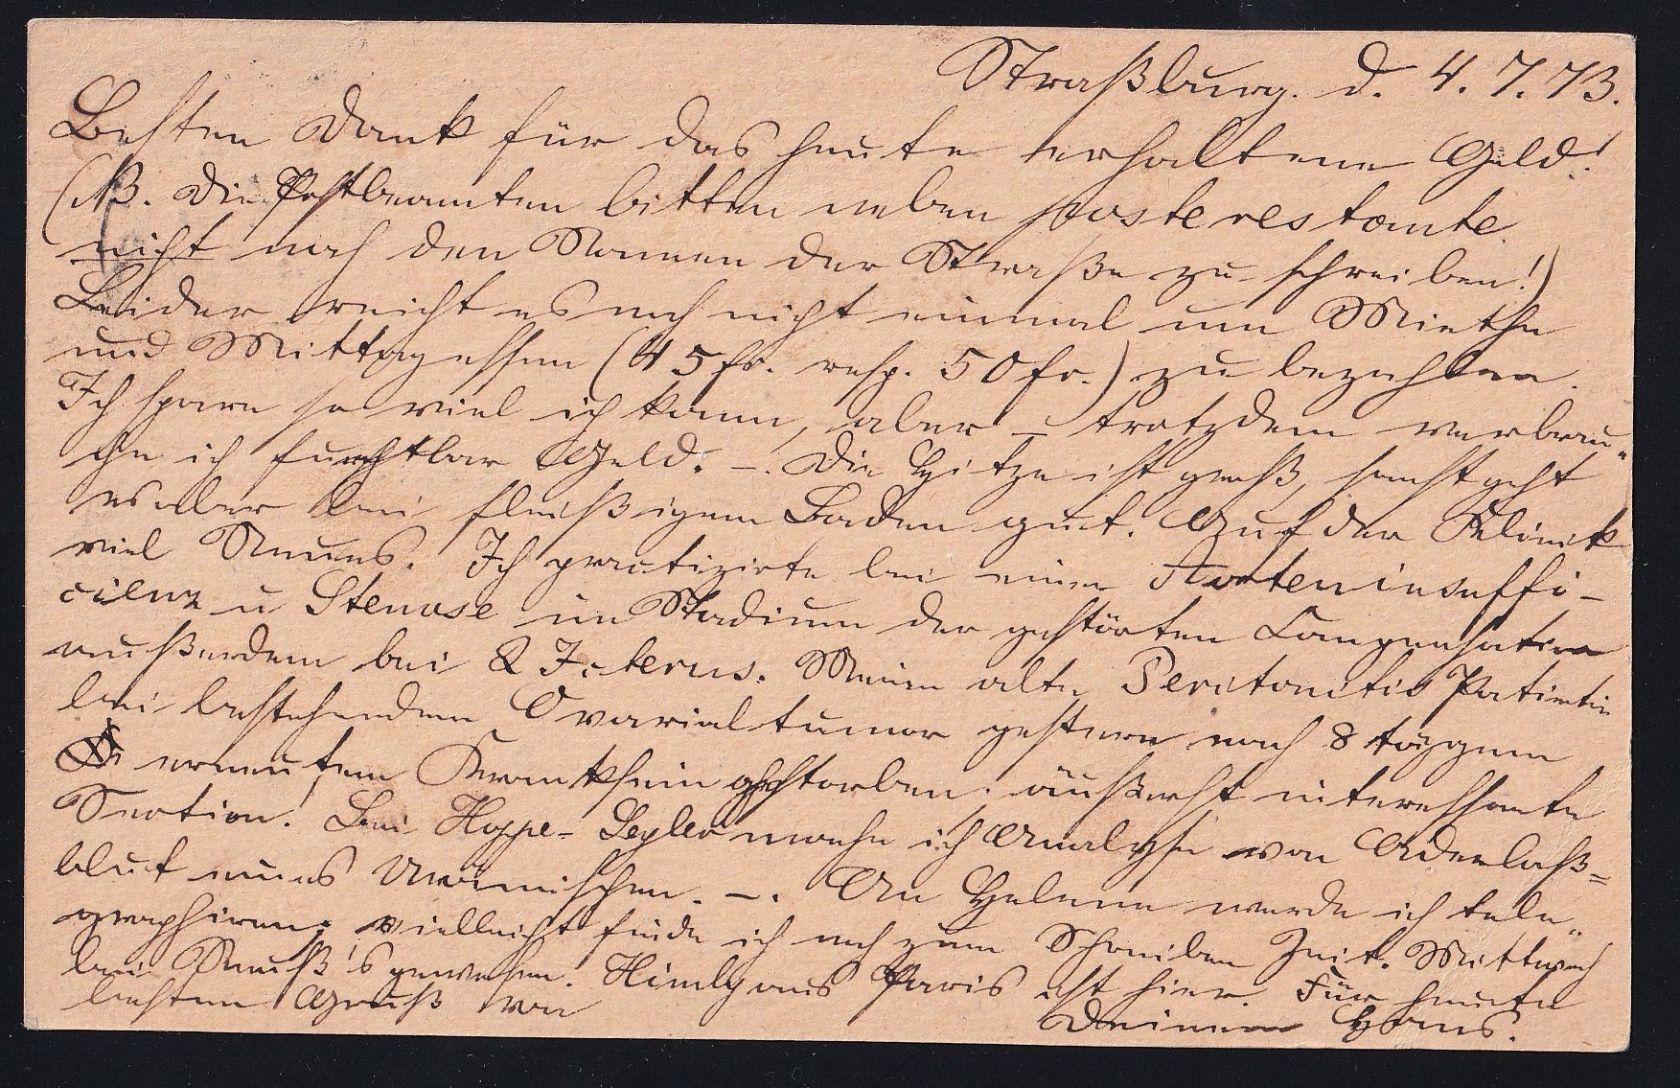 Straßburg. d. 4. 7. 73.
Besten Dank für das heute erhaltene Geld!
(NB. Die Postbeamten bitten neben poste restante
nicht noch den Namen der Straße zu schreiben!)
Leider reicht es noch nicht einmal um Miethe
und Mittagessen (45 fr. resp. 50 fr.) zu bezahlen.
Ich spare so viel ich kann, aber – trotzdem verbrau-
che ich furchtbar Geld. –. Die Hitze ist groß, sonst geht
es aber bei fleißigem Baden gut. Auf der Klinik
viel Neues. Ich practizirte bei einer Aorteninsuffi-
cienz u Stenose im Stadium der gestörten Compensation
außerdem bei 2 Icterus. Meine alte Peritonitis Patientin
bei bestehendem Ovarialtumor gestern nach 8 tägigem
erneutem Kranksein gestorben; äußerst interessante
Section! Bei Hoppe-Seyler mache ich Analyse von Aderlaß=
blut eines Urämischen. –. An Helene werde ich tele-
graphiren; vielleicht finde ich noch zum Schreiben Zeit. Mittwoch
bei gewesen. Himly aus Paris ist hier. Für heute
besten Gruß von
Deinem Hans.